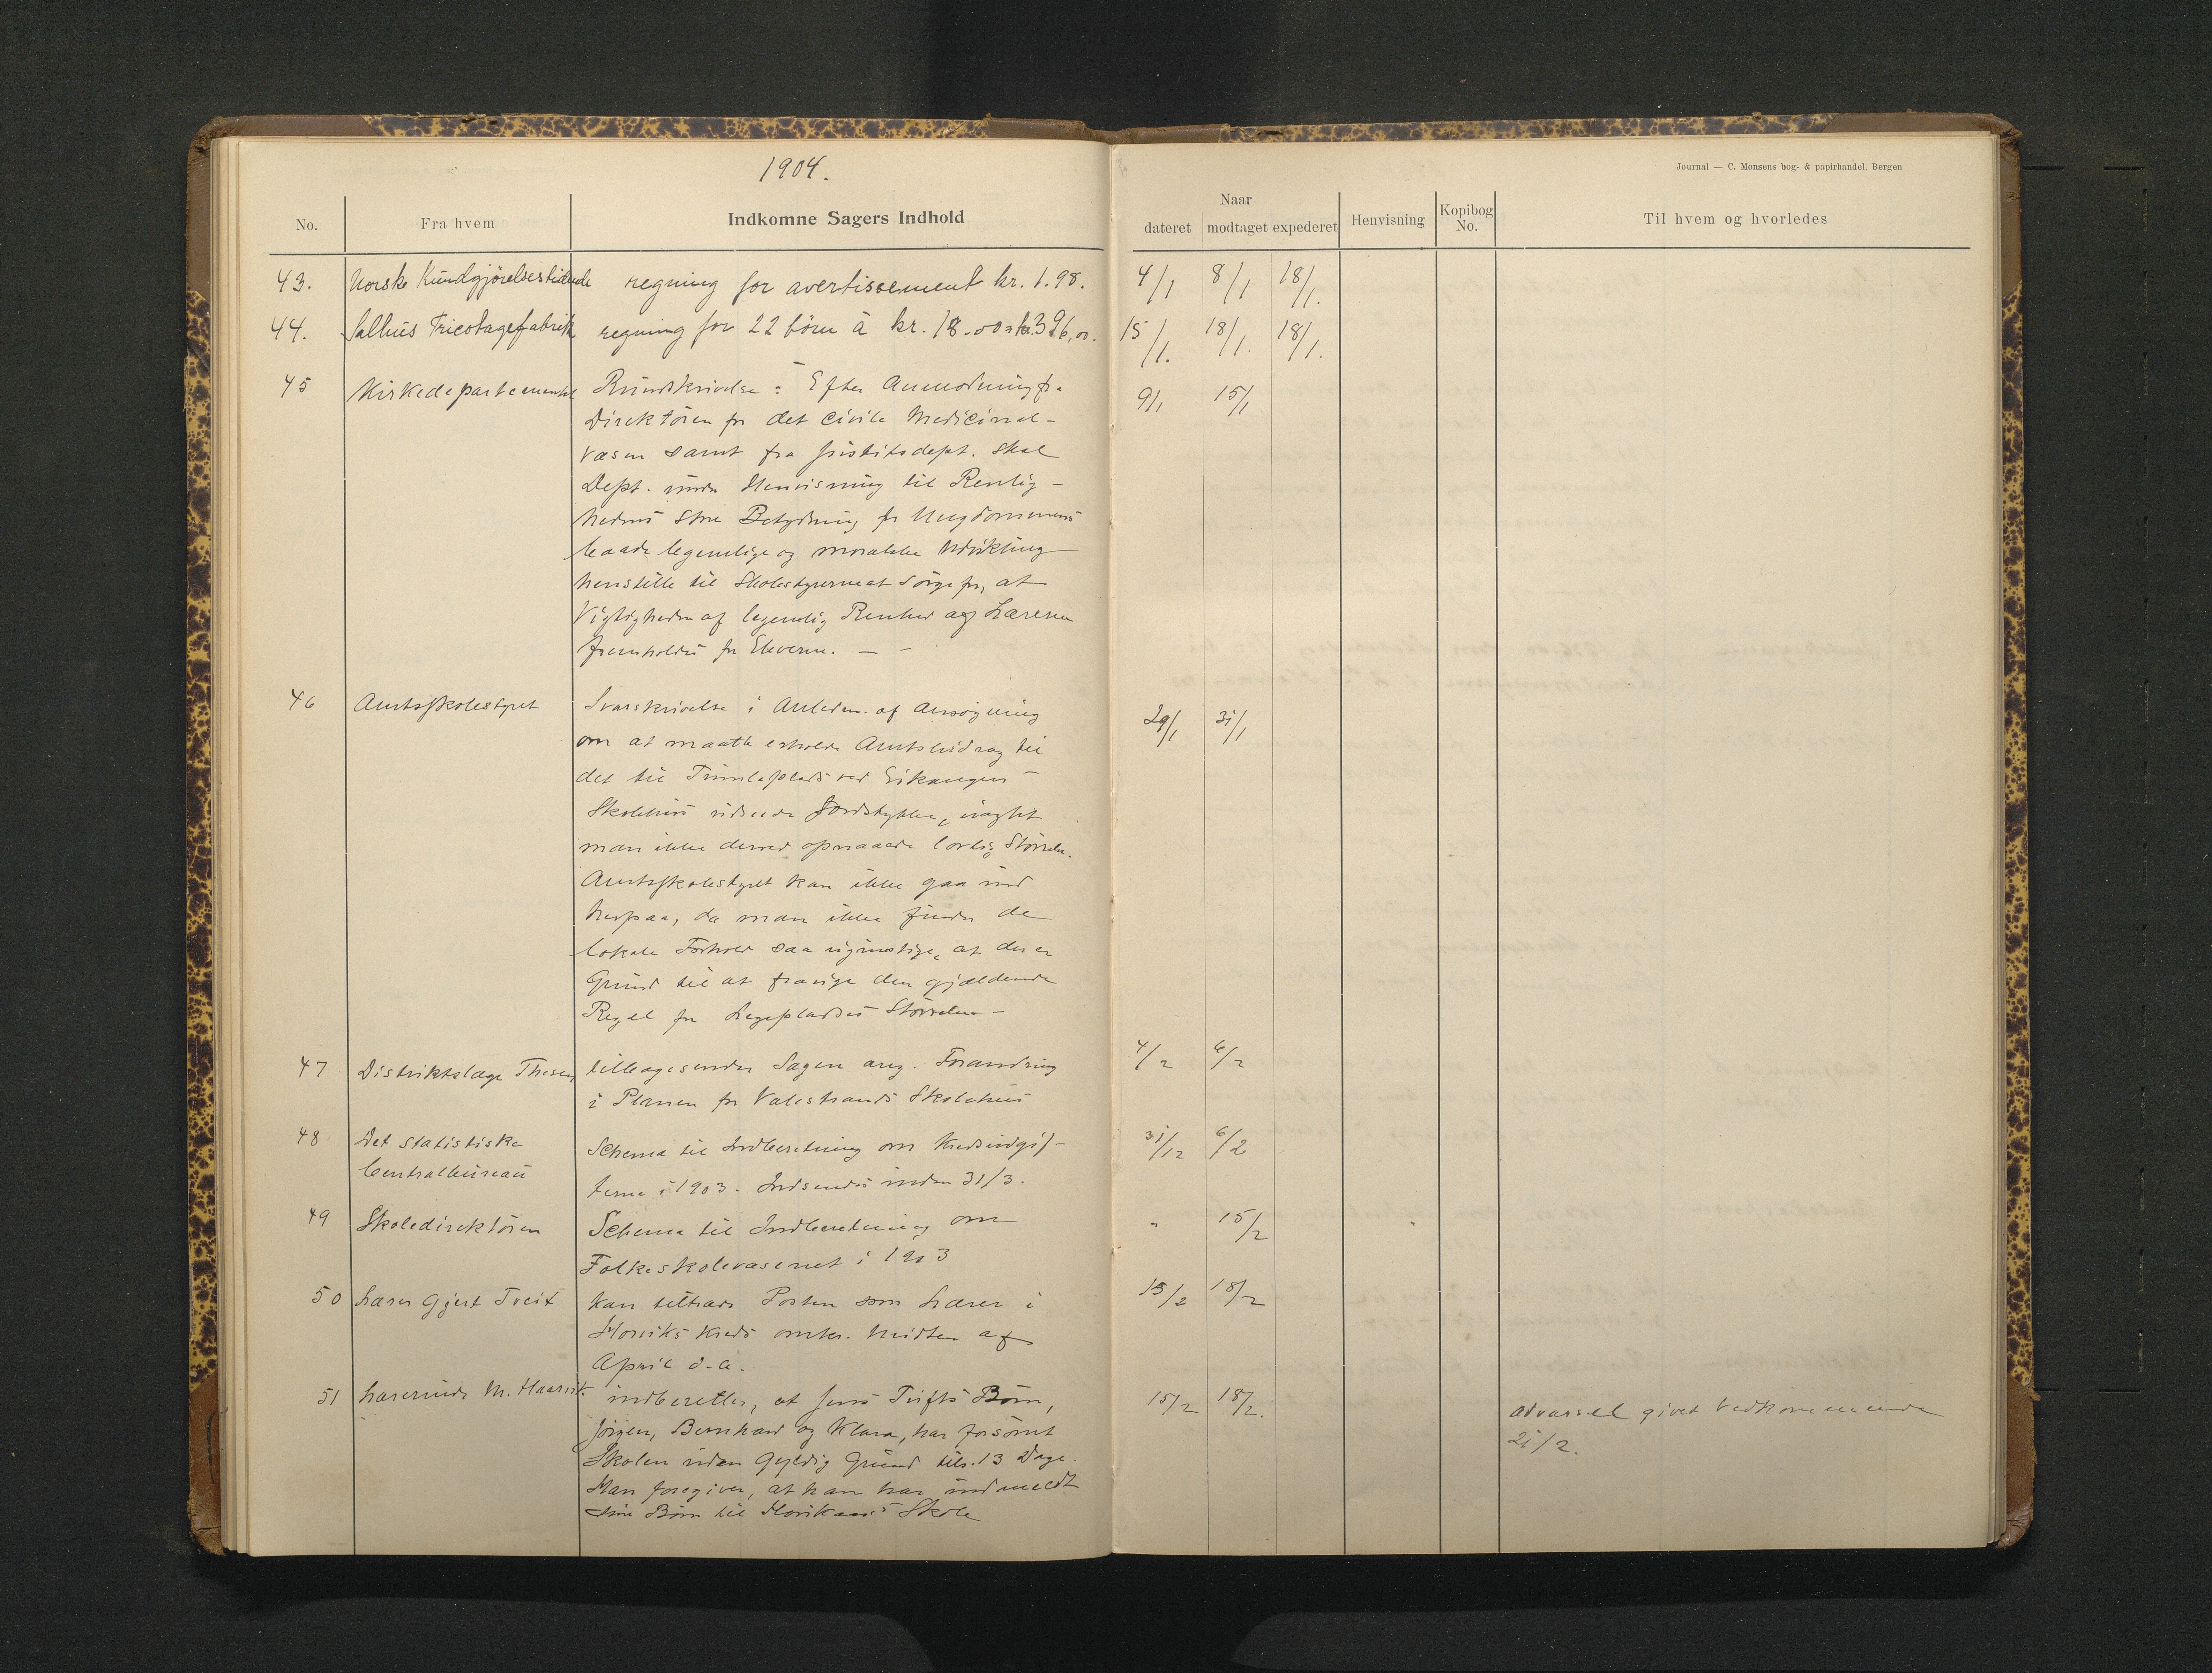 1904.
Journal — C. Monsens bog- & papirhandel, Bergen
No.
Fra hvem
Indkomne Sagers Indhold
Naar
dateret
modtaget
expederet
Henvisning
Kopibog No.
Til hvem og hvorledes
43. Norske Kundgjörelsestidende regning for avertissement kr. 1.98. 4/1 8/1 18/1.
44. Salhus Tricotagefabrik regning for 22 börn à kr. 18.00 = kr. 396,00. 15/1. 18/1. 18/1.
45 Kirkedepartementet Rundskrivelse: Efter Anmodning fra 9/1 15/1
Direktören for det civile Medicinal-
væsen samt fra Justitsdept. skal
Dept. under Henvisning til Renlig-
hedens store Betydning for Ungdommens
baade legemlige og moralske Udvikling
henstille til Skolestyrerne at sörge for, at
Vigtigheden af legemlig Renhed af Læreren
fremholdes for Eleverne. —
46 Amtsskolestyret Svarskrivelse i Anledn. af Ansögning 29/1 31/1
om at maatte erholde Amtsbidrag til
det til Tumleplads ved Eikanger
Skolehus udseede Jordstykke, uagtet
man ikke derved opnaaede lovlig Störrelse.
Amtsskolestyret kan ikke gaa ind
herpaa, da man ikke finder de
lokale Forhold saa ugunstige, at der er
Grund til at fravige den gjældende
Regel for Legepladses Störrelse —
47 Distriktslæge Thesen, tilbagesender Sagen ang. Forandring 4/2 6/2
i Planen for Valestrands Skolehus
48 Det statistiske Schema til Indberetning om Kredsudgif- 31/12 6/2
Centralbureau
terne i 1903. Indsendes inden 31/3.
49 Skoledirektören Schema til Indberetning om " 15/2
Folkeskolevæsenet i 1903
50 Lærer Gjert Tveit kan tiltræde Posten som Lærer i 15/2 18/2
Horviks Kreds omkr. Midten af
April d.a.
51 Lærerinde M. Haarvik. indberetter, at Jens Tufts Börn, 15/2 18/2. Advarsel givet Vedkommende
21/2.
Jörgen, Bernhard og Klara, har forsömt
Skolen uden gyldig Grund tils. 13 Dage.
Han foregiver, at han har indmeldt
sine Börn til Skole